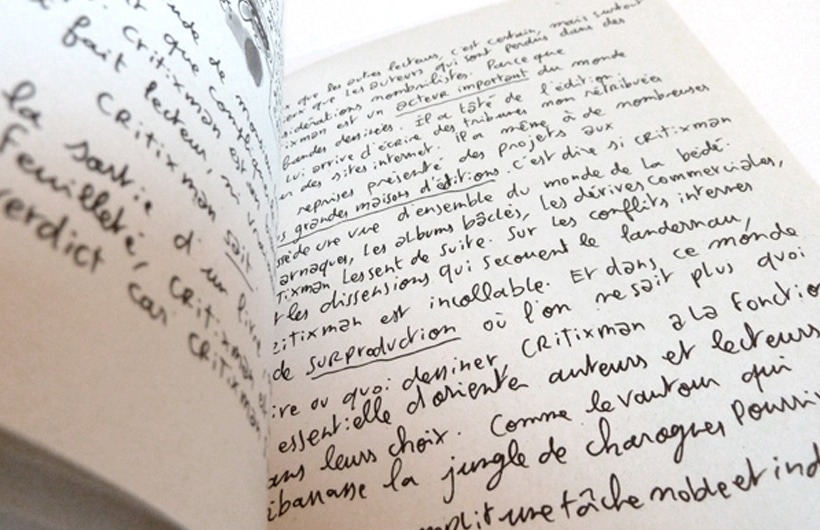 de mo
que compl
Critixman est
fait lecteur, ni
Critixman sait
la sortie d'un livre
feuilleté, Critixman
verdict car Critixman
que les autres lecteurs, c'est certain, mais surtout
que les auteurs qui sont perdus dans des
sidérations nombrilistes. Parce que
ixman est un acteur important du monde
bandes dessinées. Il a tâté de l'édition.
Lui arrive d'écrire des tribunes non rétribuées
des sites internet. Il a même à de nombreuses
reprises présenté des projets aux
s grandes maisons d'éditions. C'est dire si Critixman
ssède une vue d'ensemble du monde de la bédé.
arnaques, les albums bâclés, les dérives commerciales,
Tixman les sent de suite. Sur les conflits internes
les dissensions qui secouent le landernau,
ritixman est incollable. Et dans ce monde
de surproduction où l'on ne sait plus quoi
ire ou quoi dessiner, Critixman a la fonctio
essentielle d'orienter auteurs et lecteurs
ans leurs choix. Comme le vautour qui
ibarrasse la jungle de charognes
mplit une tâche noble et ind